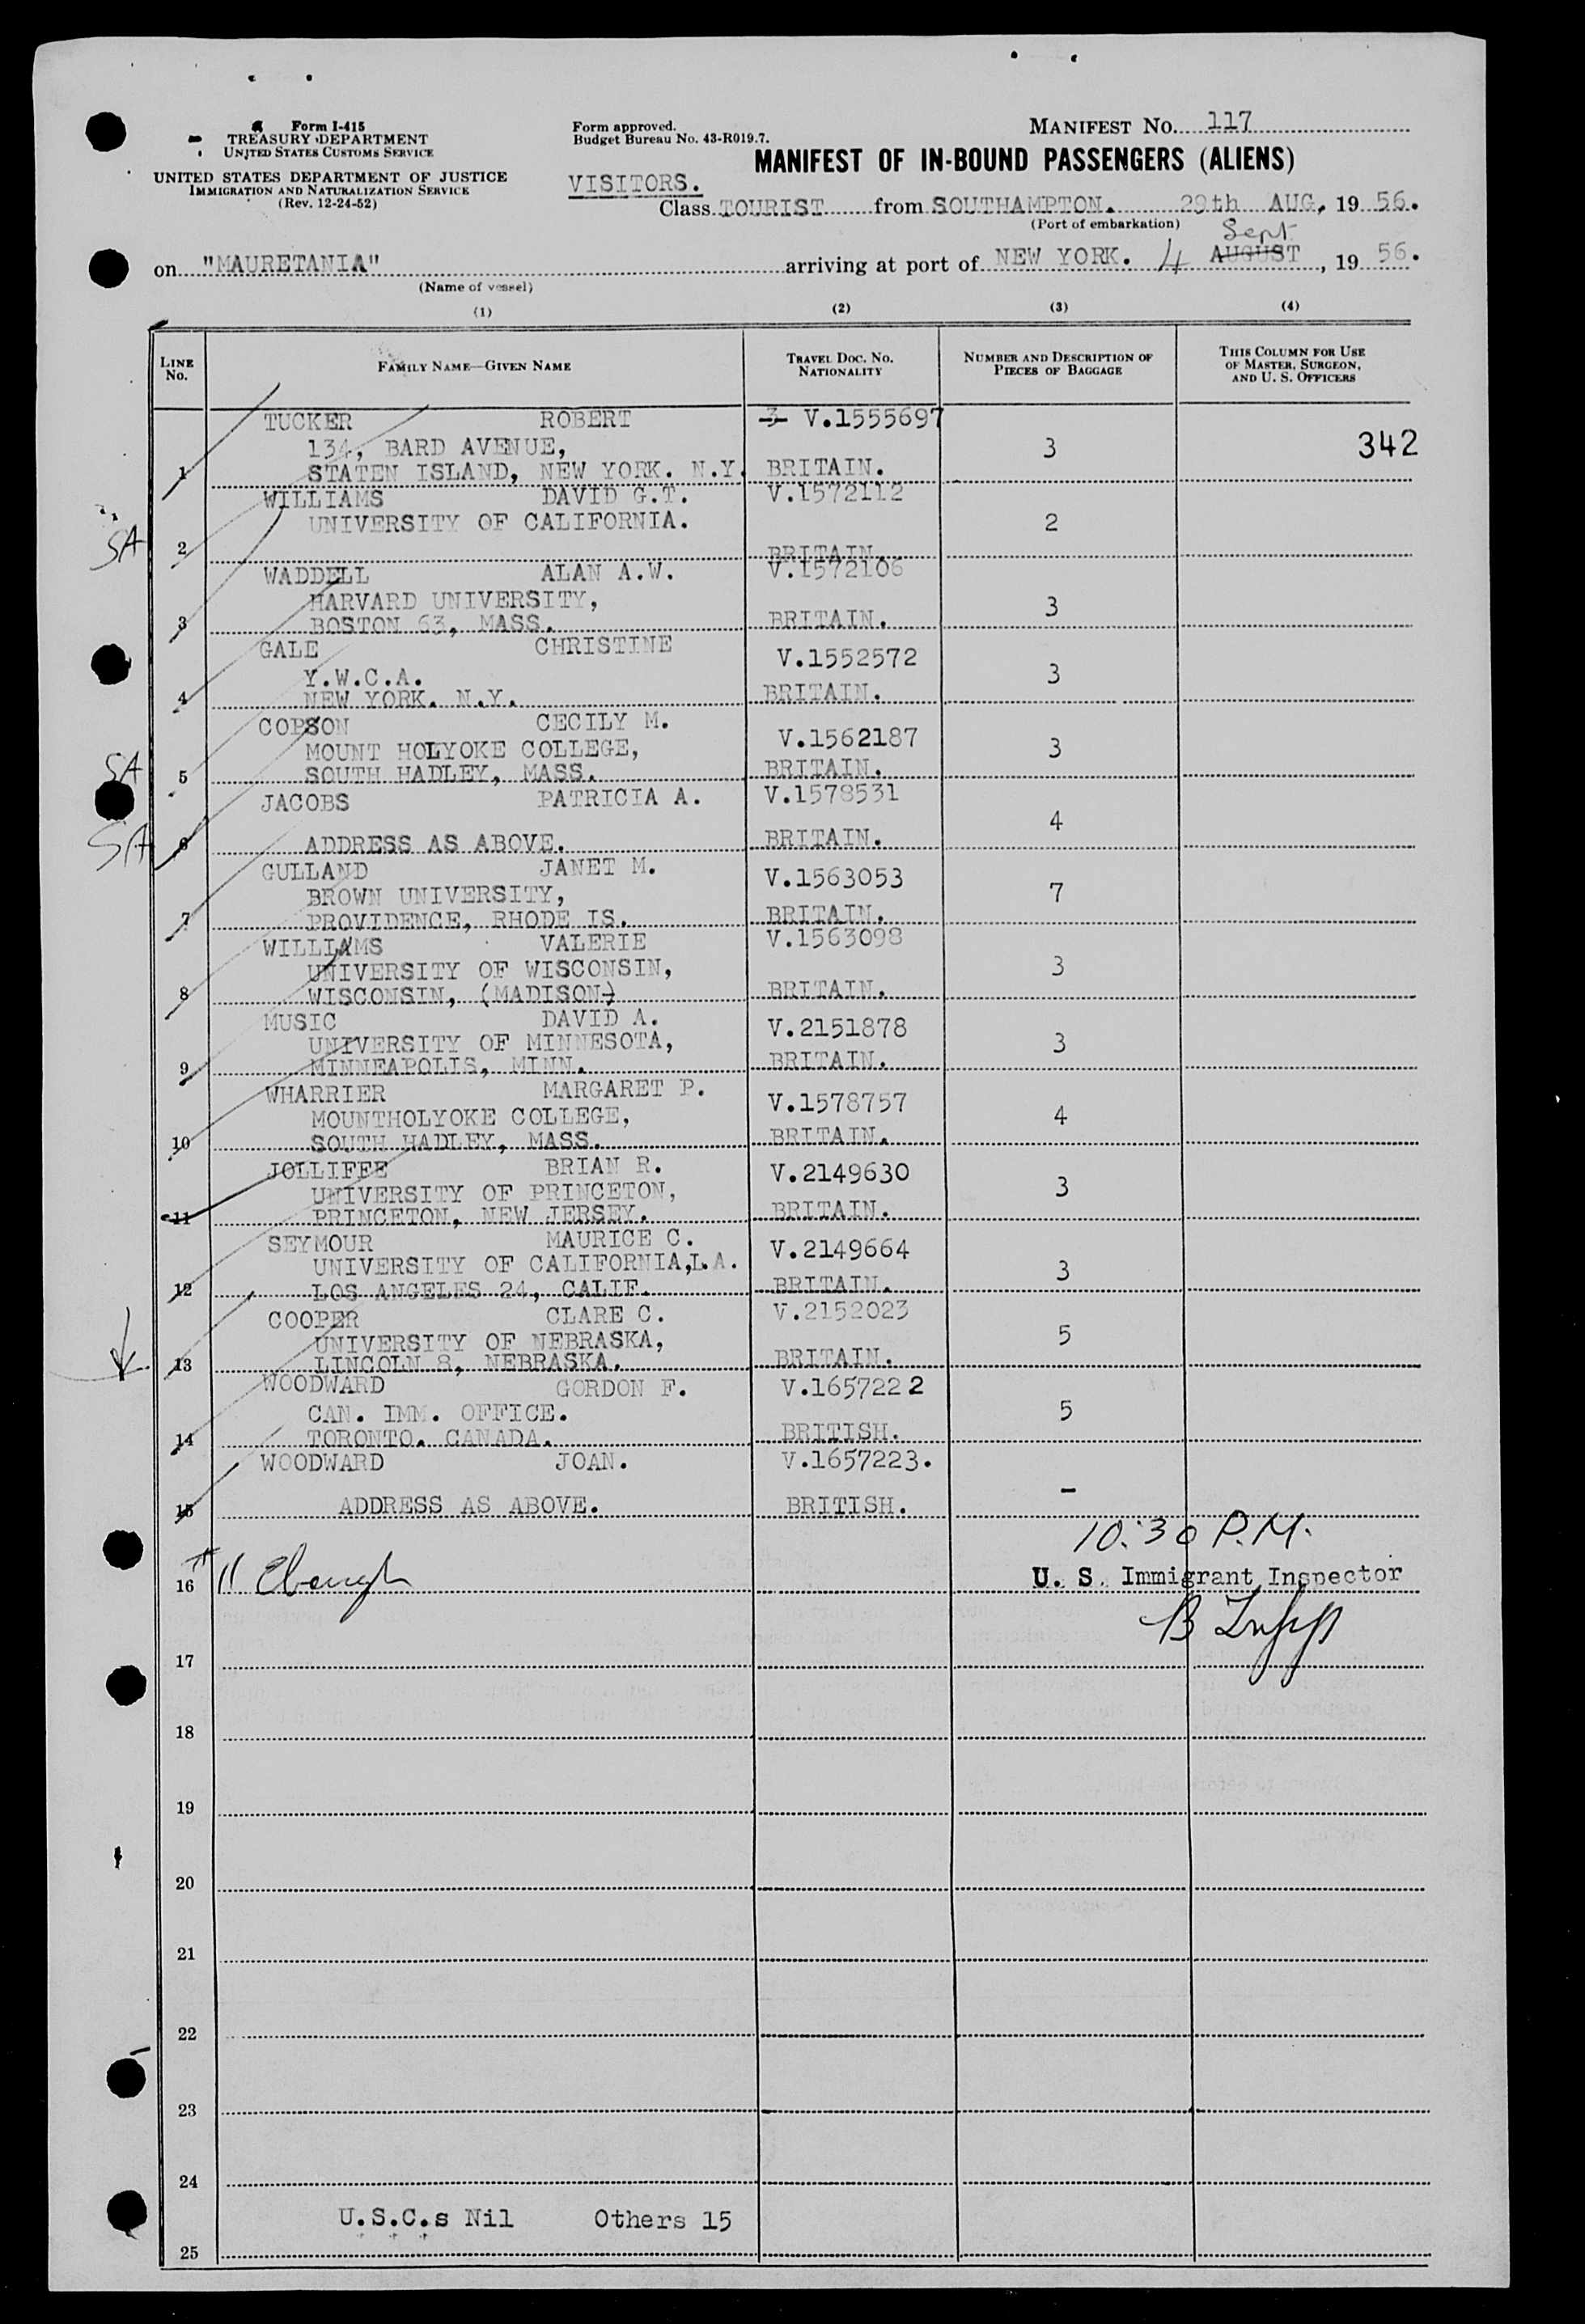 Form I-415
TREASURY DEPARTMENT
UNITED STATES CUSTOMS SERVICE
UNITED STATES DEPARTMENT OF JUSTICE
IMMIGRATION AND NATURALIZATION SERVICE
(Rev. 12-24-52)
Form approved.
Budget Bureau No. 43-R019.7.
MANIFEST NO. 117
MANIFEST OF IN-BOUND PASSENGERS (ALIENS)
VISITORS.
Class TOURIST from SOUTHAMPTON. 29th AUG, 19 56.
(Port of embarkation)
Sept
on "MAURETANIA" arriving at port of NEW YORK. 4 AUGUST, 19 56.
(Name of vessel)
(1) (2) (3) (4)
LINE NO. FAMILY NAME—GIVEN NAME TRAVEL DOC. NO. NATIONALITY NUMBER AND DESCRIPTION OF PIECES OF BAGGAGE THIS COLUMN FOR USE OF MASTER, SURGEON, AND U. S. OFFICERS
TUCKER ROBERT 3 V.1555697
134, BARD AVENUE, 3 342
1 STATEN ISLAND, NEW YORK. N.Y. BRITAIN.
WILLIAMS DAVID G.T. V.1572112
UNIVERSITY OF CALIFORNIA. 2
SA 2 BRITAIN.
WADDELL ALAN A.W. V.1572106
HARVARD UNIVERSITY, 3
3 BOSTON 63, MASS. BRITAIN.
GALE CHRISTINE V.1552572
Y.W.C.A. 3
4 NEW YORK. N.Y. BRITAIN.
COPSON CECILY M. V.1562187
MOUNT HOLYOKE COLLEGE, 3
SA 5 SOUTH HADLEY, MASS. BRITAIN.
JACOBS PATRICIA A. V.1578531
4
SA 6 ADDRESS AS ABOVE. BRITAIN.
GULLAND JANET M. V.1563053
BROWN UNIVERSITY, 7
7 PROVIDENCE, RHODE IS. BRITAIN.
WILLIAMS VALERIE V.1563098
UNIVERSITY OF WISCONSIN, 3
8 WISCONSIN, (MADISON) BRITAIN.
MUSIC DAVID A. V.2151878
UNIVERSITY OF MINNESOTA, 3
9 MINNEAPOLIS, MINN. BRITAIN.
WHARRIER MARGARET P. V.1578757
MOUNTHOLYOKE COLLEGE, 4
10 SOUTH HADLEY, MASS. BRITAIN.
JOLLIFFE BRIAN R. V.2149630
UNIVERSITY OF PRINCETON, 3
11 PRINCETON, NEW JERSEY. BRITAIN.
SEYMOUR MAURICE C. V.2149664
UNIVERSITY OF CALIFORNIA,L.A. 3
12 LOS ANGELES 24, CALIF. BRITAIN.
COOPER CLARE C. V.2152023
UNIVERSITY OF NEBRASKA, 5
13 LINCOLN 8, NEBRASKA. BRITAIN.
WOODWARD GORDON F. V.1657222
CAN. IMM. OFFICE. 5
14 TORONTO. CANADA. BRITISH.
WOODWARD JOAN. V.1657223.
-
15 ADDRESS AS ABOVE. BRITISH.
10:30 P.M.
16 U. S. Immigrant Inspector
17
18
19
20
21
22
23
24
U.S.C.s Nil Others 15
25